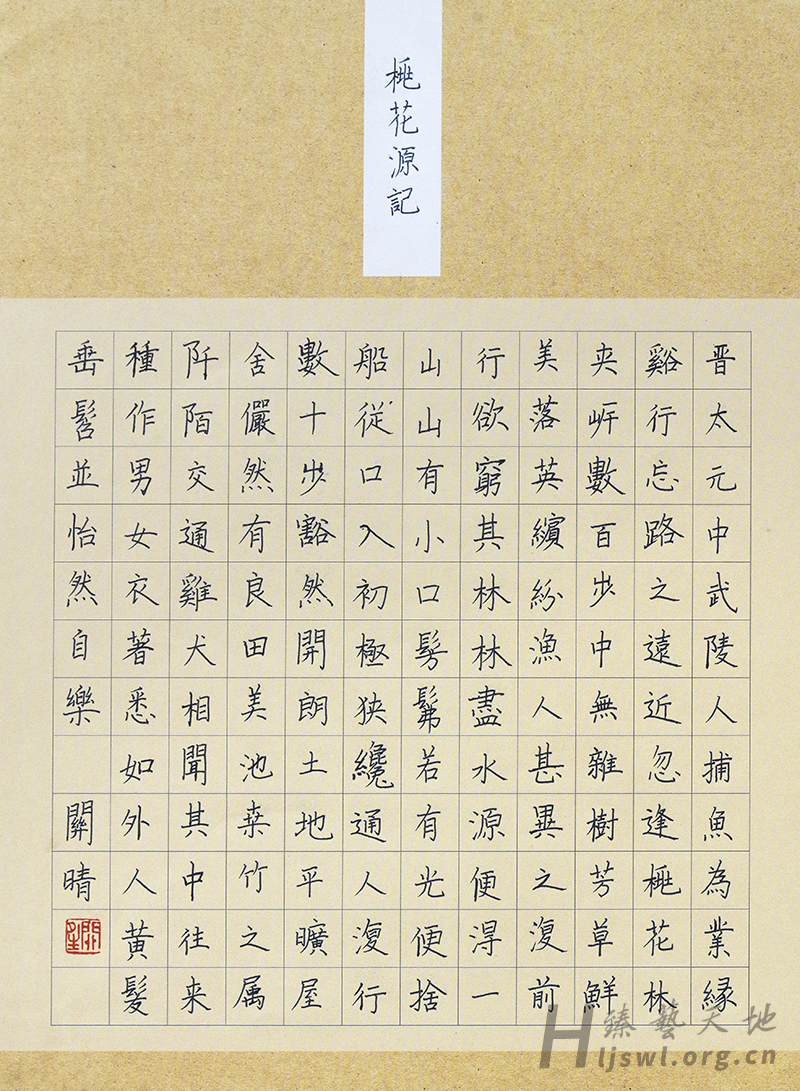 桃花源記
晋太元中武陵人捕魚為業緣
谿行忘路之遠近忽逢桃花林
夾岸數百步中無雜樹芳草鮮
美落英繽紛漁人甚異之復前
行欲窮其林林盡水源便得一
山山有小口髣髴若有光便捨
船從口入初極狹纔通人復行
數十步豁然開朗土地平曠屋
舍儼然有良田美池桑竹之属
阡陌交通雞犬相聞其中往来
種作男女衣著悉如外人黃髮
垂髫並怡然自樂 關晴
臻藝天地
Hljswl.org.cn